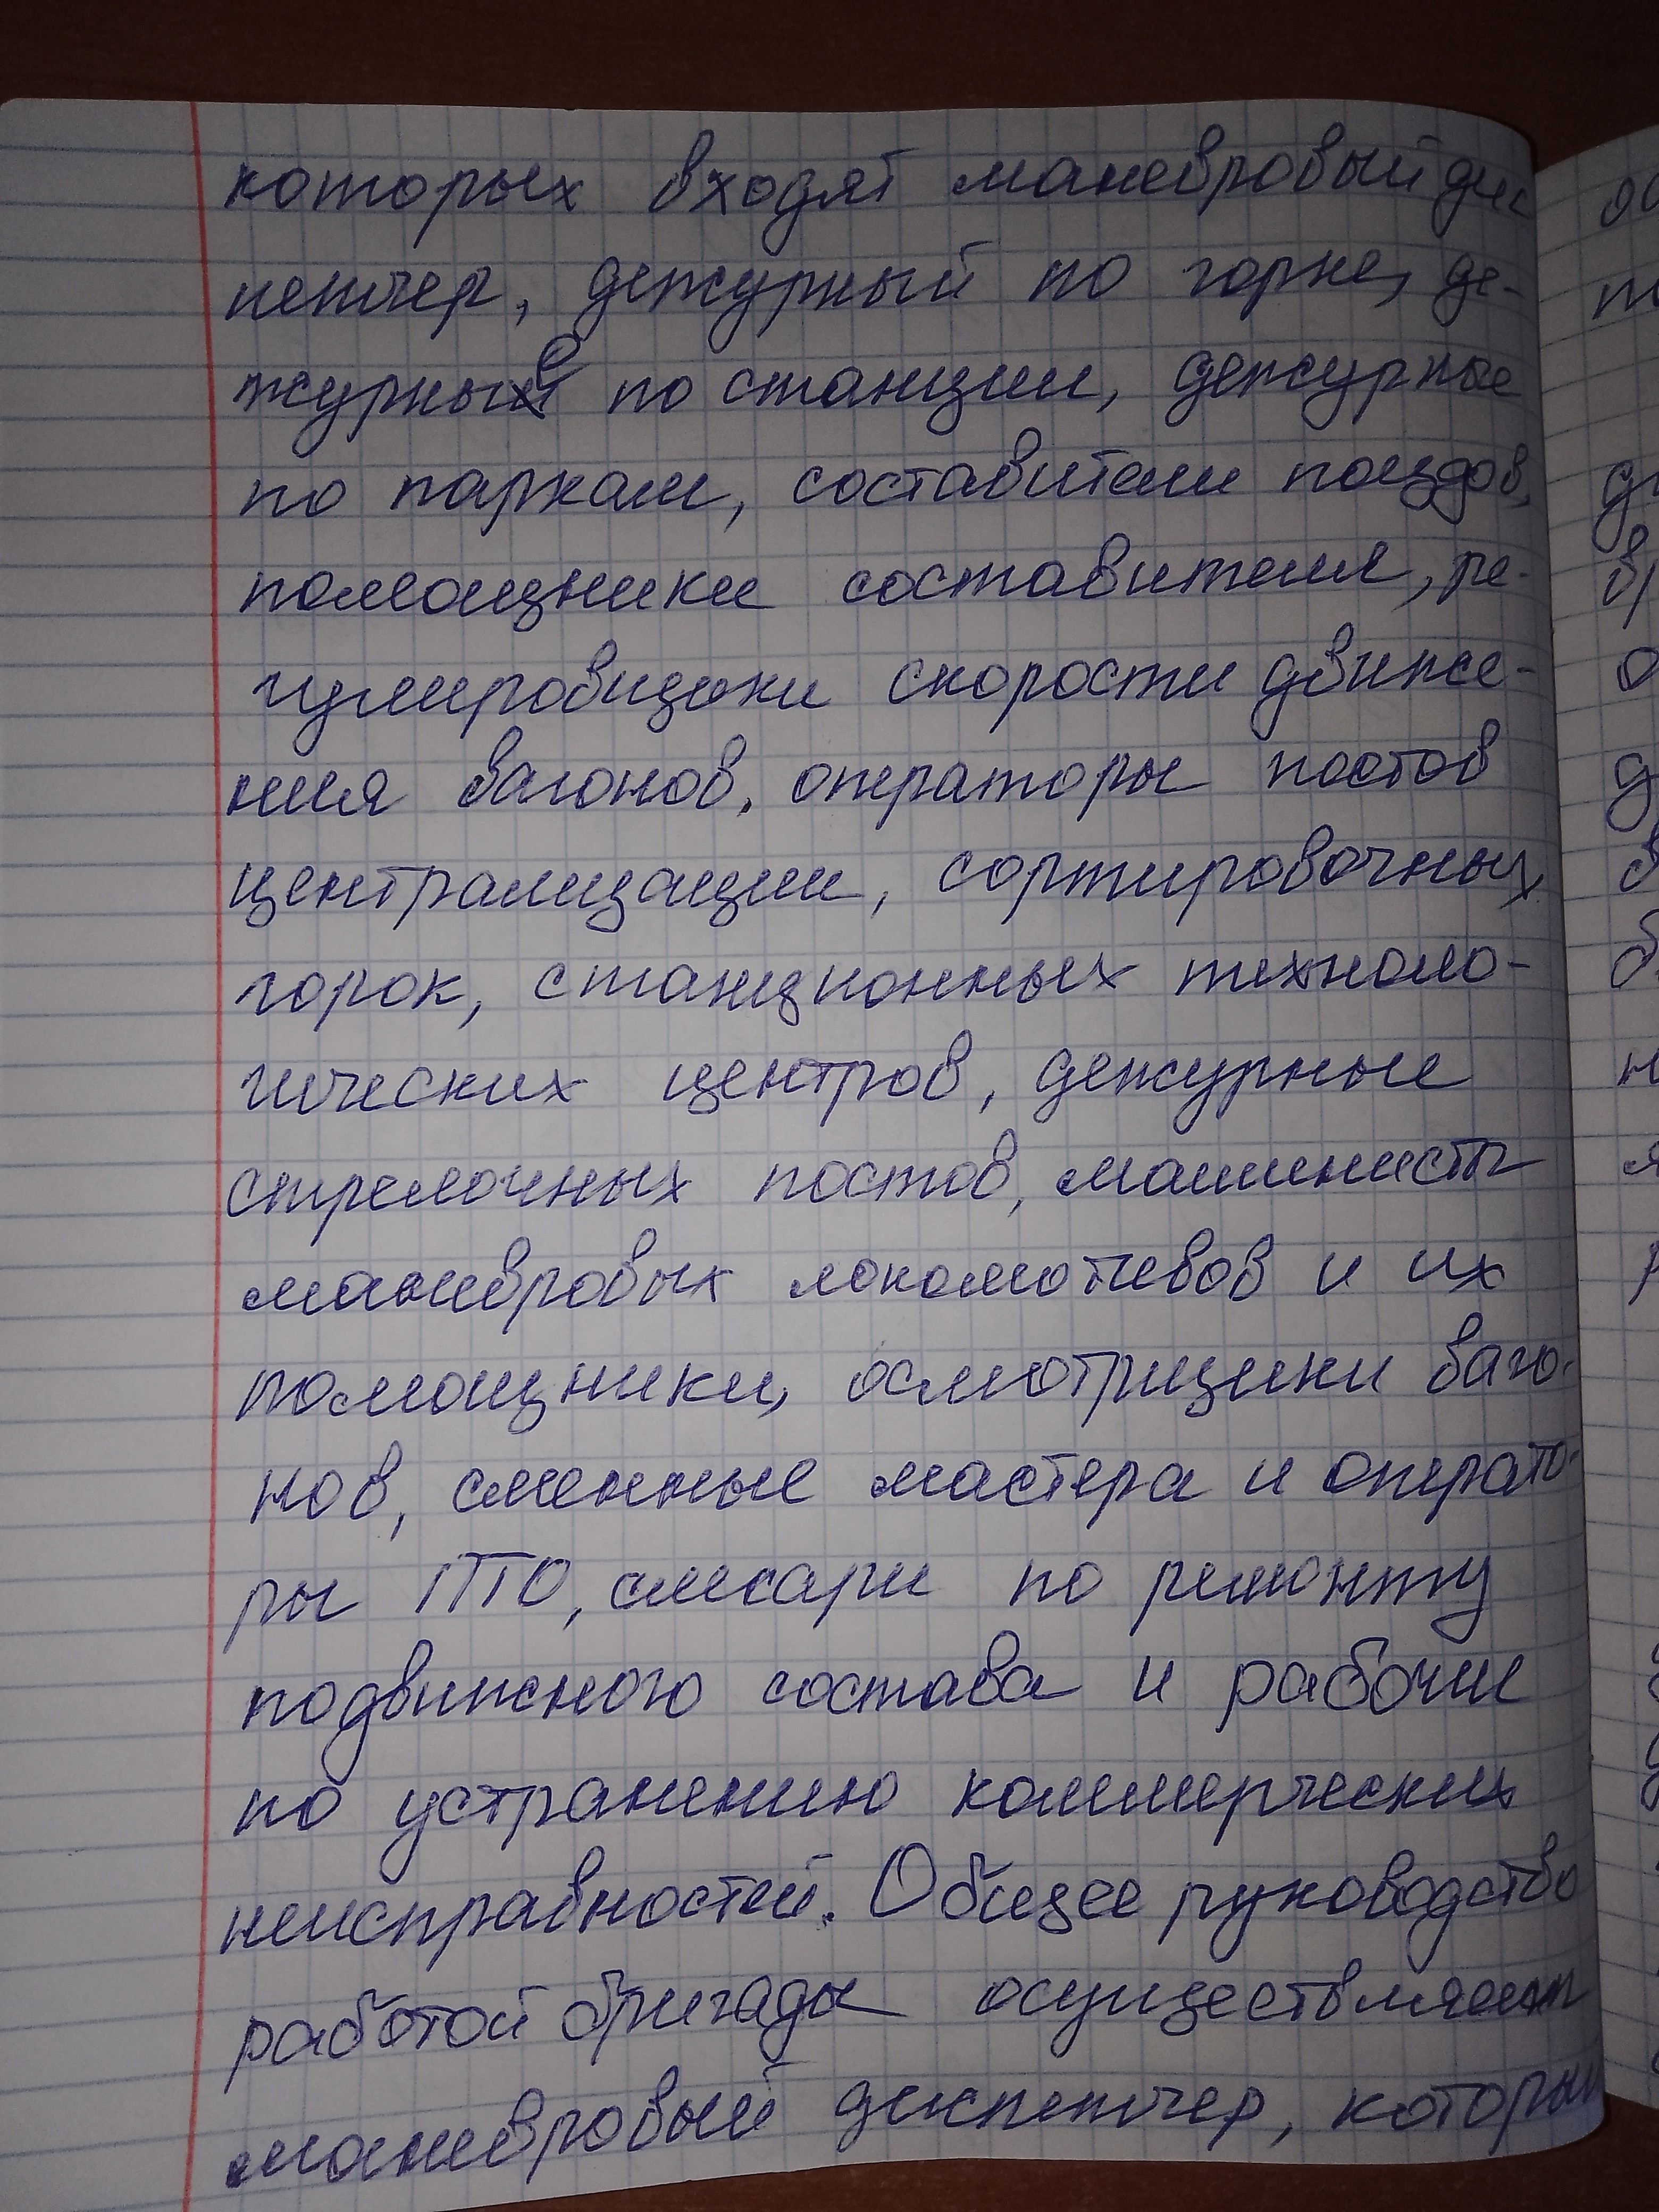 которых входят маневровый дис
петчер, дежурный по горке, де-
журные по станции, дежурные
по паркам, составители поездов,
помощники составителя, ре-
гулировщики скорости движе-
ния вагонов, операторы постов
централизации, сортировочных
горок, станционных техноло-
гических центров, дежурные
стрелочных постов, машинисты
маневровых локомотивов и их
помощники, осмотрщики ваго-
нов, сменные мастера и операто-
ры ПТО, слесари по ремонту
подвижного состава и рабочие
по устранению коммерческих
неисправностей. Общее руководство
работой бригады осуществляет
маневровый диспетчер, который